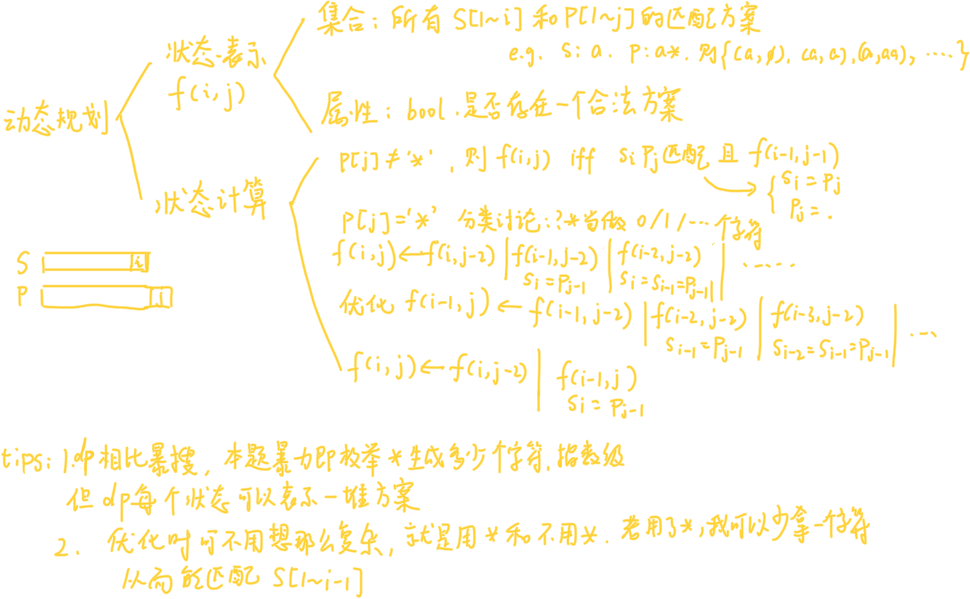 集合：所有 S[1~i] 和 P[1~j] 的匹配方案
e.g. S: a. P: a*. 则{(a,∅), (a,a), (a,aa), ....}
状态表示
f(i,j)
属性：bool. 是否存在一个合法方案
动态规划
状态计算
P[j]≠'*', 则 f(i,j) iff SiPj匹配 且 f(i-1,j-1)
{ Si = Pj
Pj = .
P[j]='*' 分类讨论：*当做 0/1/... 个字符
f(i,j)←f(i,j-2) | f(i-1,j-2) | f(i-2,j-2) | ......
Si=Pj-1 Si=Si-1=Pj-1
S i
P j
优化 f(i-1,j) ← f(i-1,j-2) | f(i-2,j-2) | f(i-3,j-2) | ...
Si-1=Pj-1 Si-2=Si-1=Pj-1
f(i,j)←f(i,j-2) | f(i-1,j)
Si=Pj-1
tips: 1.dp相比暴搜，本题暴力即枚举*生成多少个字符，指数级
但dp每个状态可以表示一堆方案
2. 优化时可不用想那么复杂，就是用*和不用*. 若用了*，我可以少拿一个字符
从而能匹配 S[1~i-1]